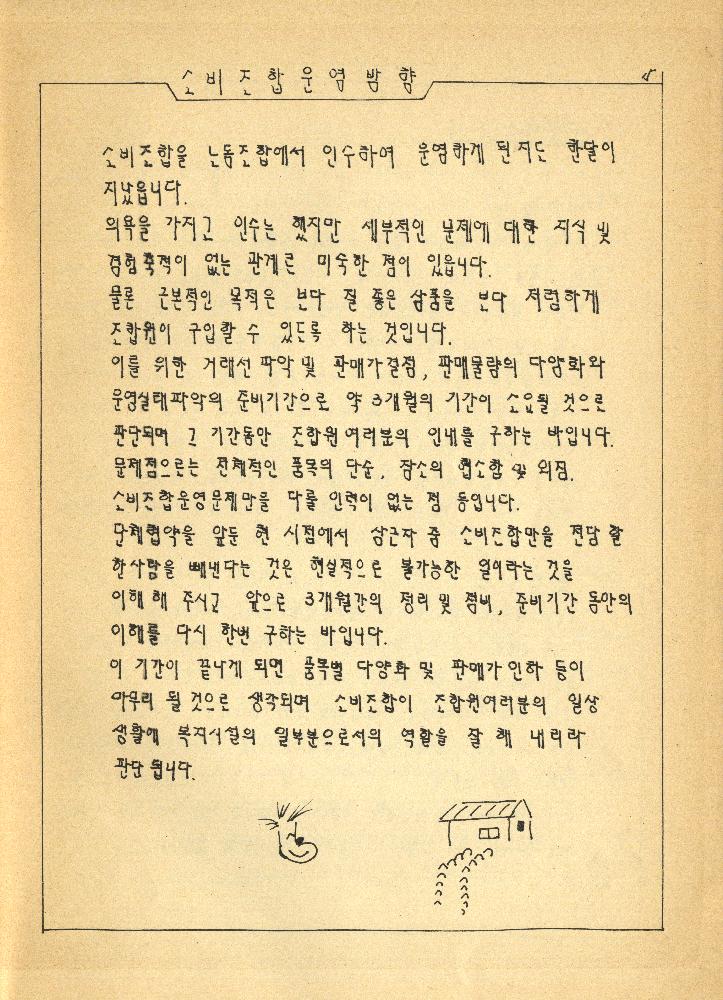 소비조합운영방향
소비조합을 노동조합에서 인수하여 운영하게 된지도 한달이
지났읍니다.
의욕을 가지고 인수는 했지만 세부적인 문제에 대한 지식 및
경험축적이 없는 관계로 미숙한 점이 있읍니다.
물론 근본적인 목적은 보다 질 좋은 상품을 보다 저렴하게
조합원이 구입할 수 있도록 하는 것입니다.
이를 위한 거래선 파악 및 판매가결정, 판매물량의 다양화와
운영실태파악의 준비기간으로 약 3개월의 기간이 소요될 것으로
판단되며 그 기간동안 조합원여러분의 인내를 구하는 바입니다.
문제점으로는 전체적인 품목의 단순, 장소의 협소함 및 외짐,
소비조합운영문제만을 다룰 인력이 없는 점 등입니다.
단체협약을 앞둔 현 시점에서 상근자 중 소비조합만을 전담 할
한사람을 빼낸다는 것은 현실적으로 불가능한 일이라는 것을
이해 해 주시고 앞으로 3개월간의 정리 및 점비, 준비기간 동안의
이해를 다시 한번 구하는 바입니다.
이 기간이 끝나게 되면 품목별 다양화 및 판매가 인하 등이
마무리 될 것으로 생각되며 소비조합이 조합원여러분의 일상
생활에 복지시설의 일부분으로서의 역활을 잘 해 내리라
판단 됩니다.